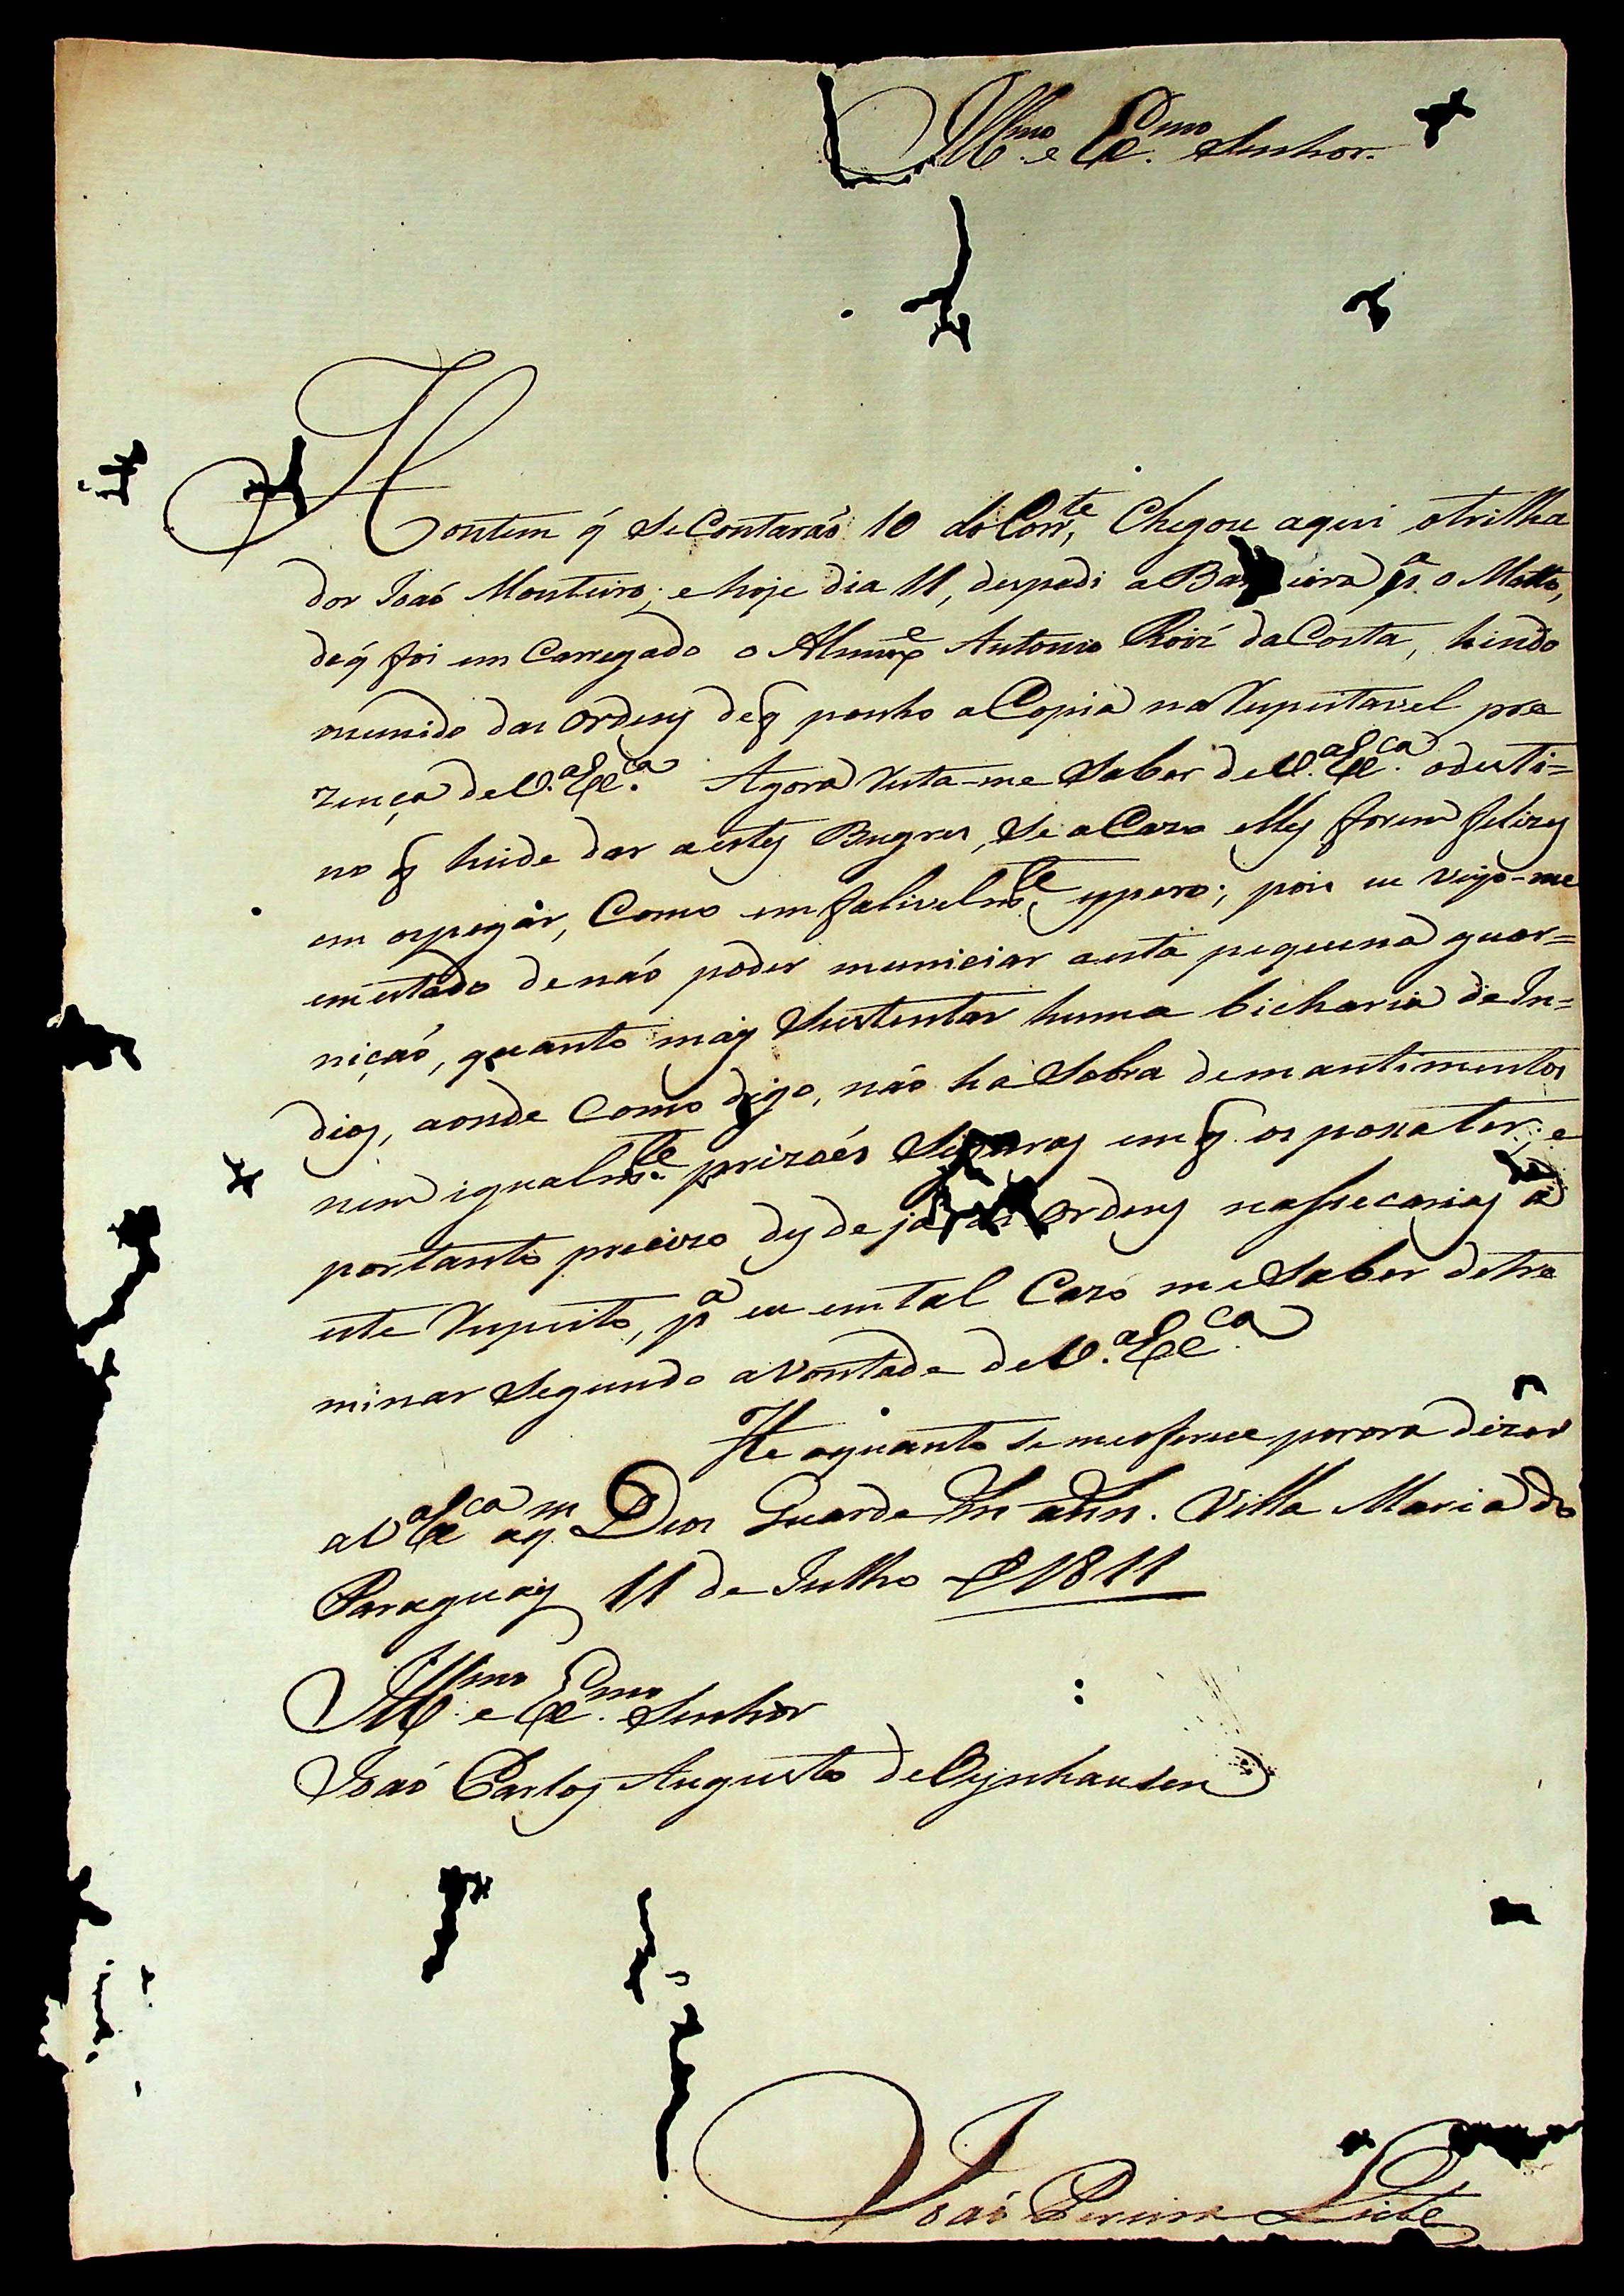 Illmo. e Exmo. Senhor.
Hontem q̃ se Contaraõ 10 do Corrte, Chegou aqui otrilha
dor Joaõ Monteiro; e hoje dia 11, despedi a Ban eira pa. o Matto,
deq̃ foi em Carregado o Almoxe Antonio Roiz daCosta, hindo
munido das Ordens deq̃ ponho aCopia naRespeitavel pre
zença deV.a Exca. Agora resta-me Saber deV.a Exca. odesti=
no q̃ heide dar aestes Bugres, Se aCazo elles forem felizes
em ospegar, Como emfalivelmte. espero; pois eu vejo-me
emestado denaõ poder municiar aesta pequena guar=
niçaõ, quanto mais Sustentar huma bicharia de In=
dios, aonde Como digo, naõ ha Sobra demantimentos
nem igualmte. prizoẽs Seguras em q̃. os possa ter; e
portanto precizo desde já as Ordens nassecarias a
este respeito, pa eu em tal Cazo me Saber detre
minar Segundo aVontade deV.a Exca.
He oquanto se meoferece porora dizer
aV.a Exca aqm Deos Guarde ms ans. Villa Maria do
Paraguay 11 de Julho de 1811
Illmo. e Exmo. Senhor
Joaõ Carlos Augusto deOeynhausen
Joaõ Pereira Leite